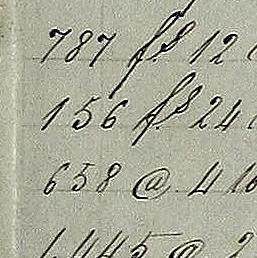 787 f.s 12
156 f.s 24
658 @ 4 16
1445 @ 2